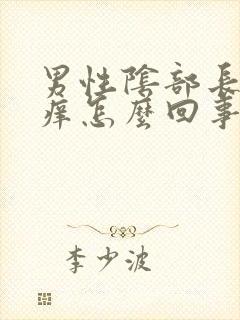 男性陰部長
痒怎麽回事
李少波